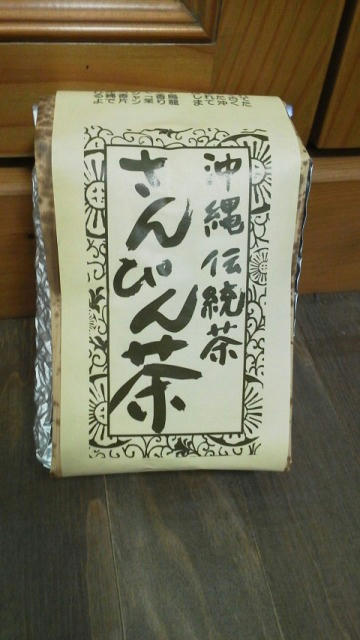 沖縄伝統茶
さんぴん茶